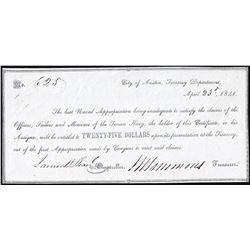 No. 625
City of Austin, Treasury Department,
April 23d 1841
The last Naval Appropriation being inadequate to satisfy the claims of the
Officers, Sailors and Marines of the Texan Navy, the holder of this Certificate, or his
Assignee, will be entitled to TWENTY-FIVE DOLLARS upon its presentation at the Treasury,
out of the first Appropriation made by Congress to meet said claims.
Comptroller. Treasurer